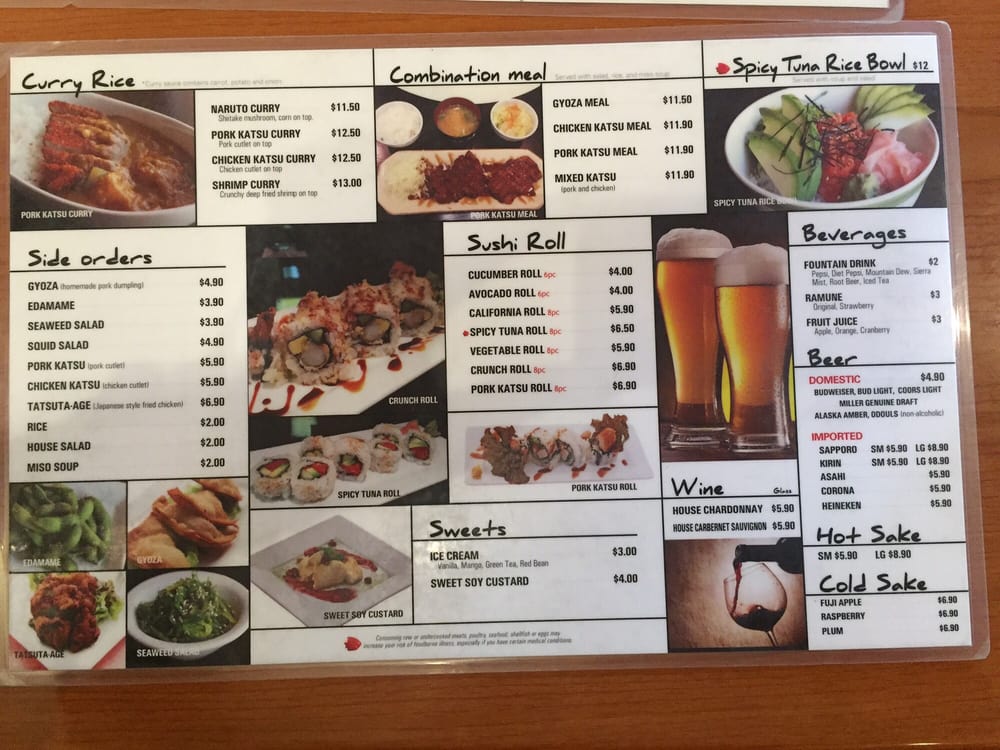 Curry Rice *Curry sauce contains carrot, potato and onion
NARUTO CURRY $11.50
Shiitake mushroom, corn on top.
PORK KATSU CURRY $12.50
Pork cutlet on top
CHICKEN KATSU CURRY $12.50
Chicken cutlet on top
SHRIMP CURRY $13.00
Crunchy deep fried shrimp on top
PORK KATSU CURRY
Combination meal Served with salad, rice, and miso soup
GYOZA MEAL $11.50
CHICKEN KATSU MEAL $11.90
PORK KATSU MEAL $11.90
MIXED KATSU $11.90
(pork and chicken)
PORK KATSU MEAL
Spicy Tuna Rice Bowl $12
Served with soup and salad
SPICY TUNA RICE BOWL
Side orders
GYOZA (homemade pork dumpling) $4.90
EDAMAME $3.90
SEAWEED SALAD $3.90
SQUID SALAD $4.90
PORK KATSU (pork cutlet) $5.90
CHICKEN KATSU (chicken cutlet) $5.90
TATSUTA-AGE (Japanese style fried chicken) $6.90
RICE $2.00
HOUSE SALAD $2.00
MISO SOUP $2.00
EDAMAME
GYOZA
TATSUTA-AGE
SEAWEED SALAD
CRUNCH ROLL
SPICY TUNA ROLL
Sushi Roll
CUCUMBER ROLL 6pc $4.00
AVOCADO ROLL 6pc $4.00
CALIFORNIA ROLL 8pc $5.90
SPICY TUNA ROLL 8pc $6.50
VEGETABLE ROLL 8pc $5.90
CRUNCH ROLL 8pc $6.90
PORK KATSU ROLL 8pc $6.90
PORK KATSU ROLL
Sweets
ICE CREAM $3.00
Vanilla, Mango, Green Tea, Red Bean
SWEET SOY CUSTARD $4.00
SWEET SOY CUSTARD
Consuming raw or undercooked meats, poultry, seafood, shellfish or eggs may
increase your risk of foodborne illness, especially if you have certain medical conditions.
Wine Glass
HOUSE CHARDONNAY $5.90
HOUSE CARBERNET SAUVIGNON $5.90
Beverages
FOUNTAIN DRINK $2
Pepsi, Diet Pepsi, Mountain Dew, Sierra
Mist, Root Beer, Iced Tea
RAMUNE $3
Original, Strawberry
FRUIT JUICE $3
Apple, Orange, Cranberry
Beer
DOMESTIC $4.90
BUDWEISER, BUD LIGHT, COORS LIGHT
MILLER GENUINE DRAFT
ALASKA AMBER, ODOULS (non-alcoholic)
IMPORTED
SAPPORO SM $5.90 LG $8.90
KIRIN SM $5.90 LG $8.90
ASAHI $5.90
CORONA $5.90
HEINEKEN $5.90
Hot Sake
SM $5.90 LG $8.90
Cold Sake
FUJI APPLE $6.90
RASPBERRY $6.90
PLUM $6.90